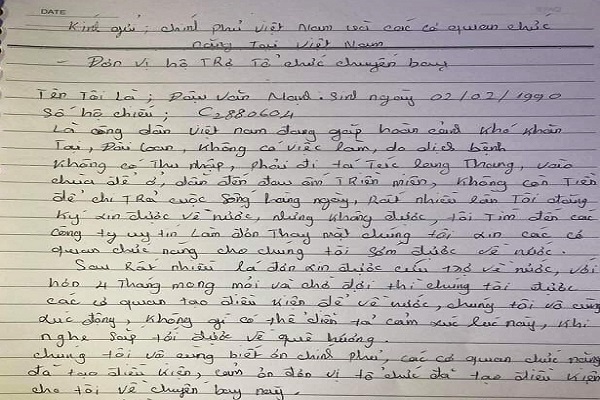 DATE
Kính gửi; chính phủ Việt Nam với các cơ quan chức
năng Tại Việt Nam
- Đơn vị hộ Trợ Tổ chức chuyến bay
Tên Tôi Là; Đậu Văn Mạnh. Sinh ngày 02/02/1990
Số hộ chiếu; C2880604
Là công dân Việt nam đang gặp hoàn cảnh khó khăn
Tại, Đài Loan, không có việc làm, do dịch bệnh
không có Thu nhập, phải đi tá Túc Lang Thang, vào
chùa để ở, dẫn đến đau ốm TRiền miên, không còn Tiền
để chi TRả cuộc sống hàng ngày, Rất nhiều lần Tôi đăng
ký xin được về nước, nhưng không được, tôi Tìm đến các
công ty uy tín Làm đơn Thay mặt chúng tôi xin các cơ
quan chức năng cho chúng tôi sớm được về nước.
Sau Rất nhiều lá đơn xin được cứu trợ về nước, với
hơn 4 Tháng mong mỏi và chờ đợi thì chúng tôi được
các cơ quan tạo điều kiện để về nước, chúng tôi vô cùng
xúc động, không gì có thể diễn tả cảm xúc lúc này, khi
nghe sắp tới được về quê hương.
chúng tôi vô cùng biết ơn chính phủ, các cơ quan chức năng
đã tạo điều kiện, cảm ơn đơn vị tổ chức đã tạo điều kiện
cho tôi về chuyến bay này.